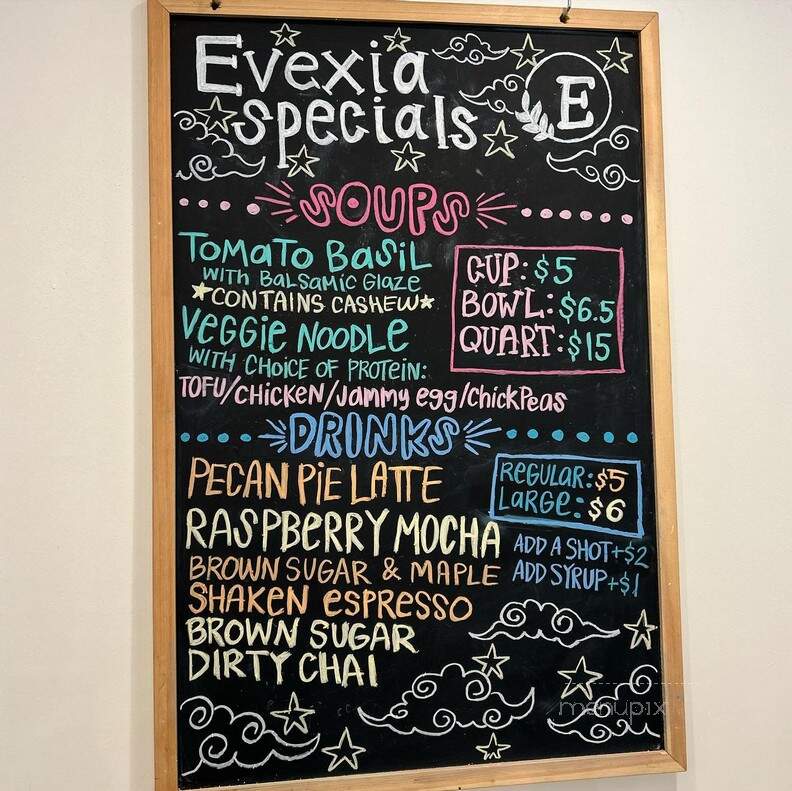 Evexia
specials
E
SOUPS
TOMATO BASIL
WITH BALSAMIC GLAZE
*CONTAINS CASHEW*
VEGGIE NOODLE
WITH CHOICE OF PROTEIN:
TOFU/CHICKEN/Jammy egg/ChickPeas
CUP: $5
BOWL: $6.5
QUART: $15
DRINKS
PECAN PIE LATTE
RASPBERRY MOCHA
BROWN SUGAR & MAPLE
SHAKEN ESPRESSO
BROWN SUGAR
DIRTY CHAI
REGULAR: $5
LARGE: $6
ADD A SHOT +$2
ADD SYRUP +$1
menupix